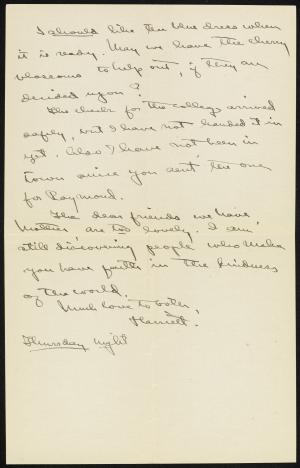 I should like the blue dress when
it is ready. May we have the cherry
blossoms to help out, if they are
decided upon?
The check for the college arrived
safely, but I have not handed it in
yet. Also I have not been in
town since you sent the one
for Raymond.
The dear friends we have
Mother are too lovely. I am
still discovering people who make
you have faith in the kindness
of the world.
Much love to both,
Harriett.
Thursday night